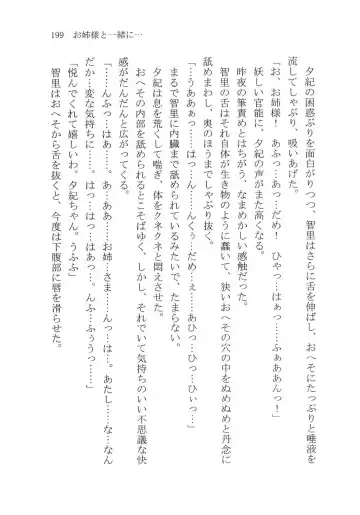 199 お姉様と一緒に…
夕紀の困惑ぶりを面白がりつつ、智里はさらに舌を伸ばし、おへそにたっぷりと唾液を
流してしゃぶり、吸いあげた。
「お、お姉様！ あふっ…あっ…だめ！ ひゃっ…はぁっ……ふぁああんっ！」
妖しい官能に、夕紀の声がまた高くなる。
昨夜の筆責めとはちがう、なめらかな感触だった。
智里の舌はそれ自体が生き物のように蠢いて、狭いおへその穴の中をぬめぬめと丹念に
舐めまわし、奥のほうまでしゃぶり抜く。
「…あ…ああぁっ……はっ…ん……んくぅ…だめ…ぇ……あひっ…ひっ…ひぃっ…」
まるで智里に内臓まで舐められているみたいで、たまらない。
夕紀は息を荒くして喘ぎ、体をクネクネと悶えさせた。
おへその内部を舐められるとこそばゆく、しかし、それでいて気持ちのいい不思議な快
感がだんだんと広がってくる。
「……んふっ…はあ……。あ…ああ……お姉…さま……んっ…は…。あたし……な…なん
だか…変な気持ちに……。はっ……はっ…はあっ…。んふ…ふぅうっ……」
「悦んでくれて嬉しいわ。夕紀ちゃん。うふふ」
智里はおへそから舌を抜くと、今度は下腹部に唇を滑らせた。